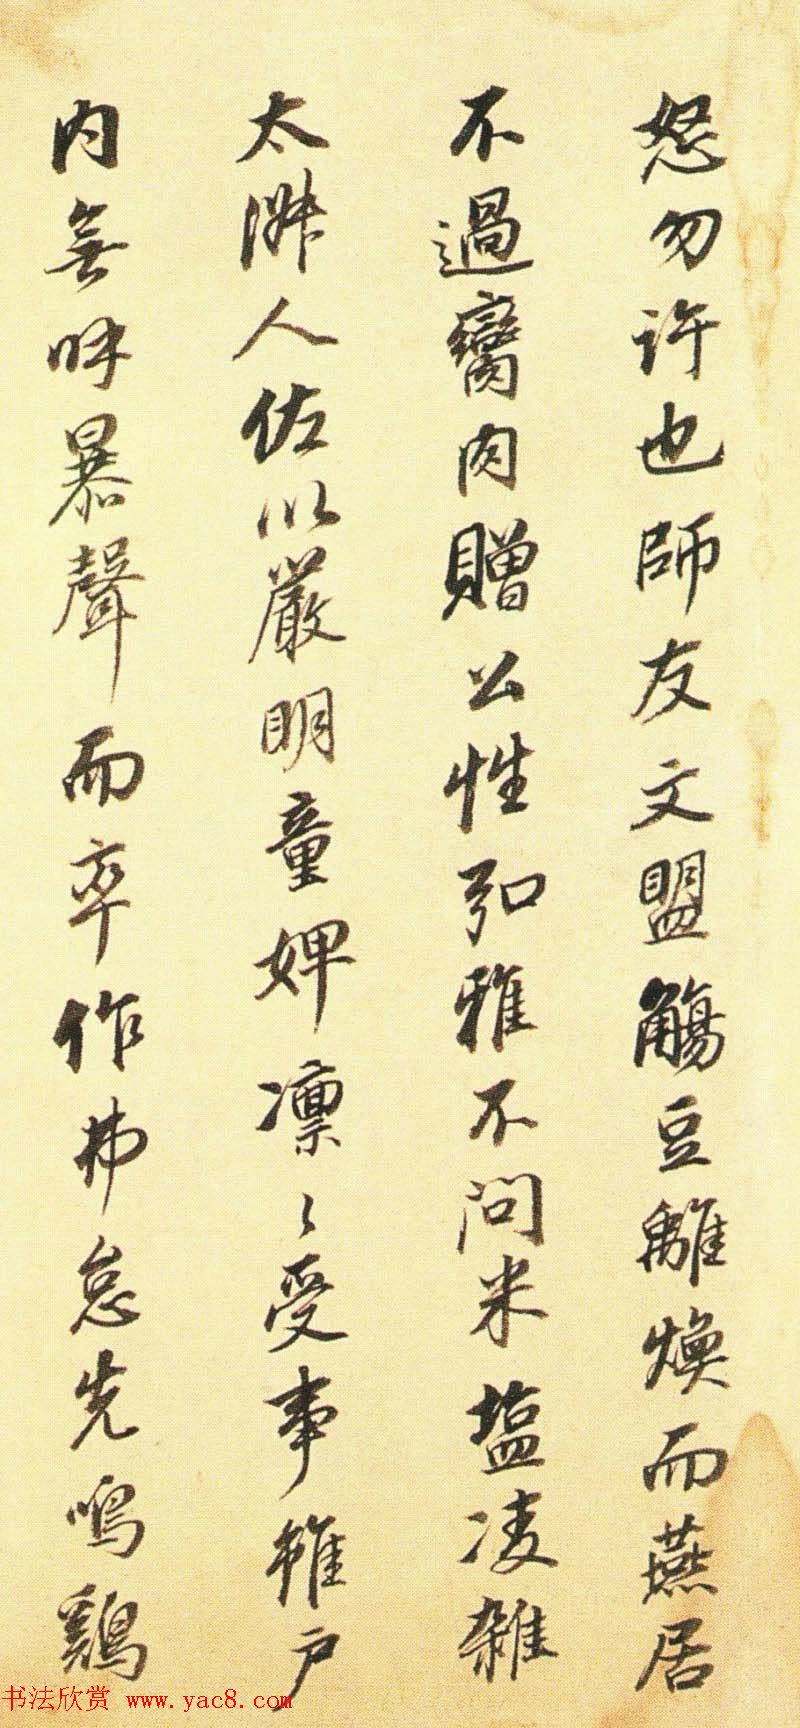 怒勿許也師友文盟觴豆離煥而燕居
不過臠肉贈公性弘雅不問米塩凌雜
太淑人佐以嚴明童婢凛〻受事錐戶
內無呼暴聲而卒作弗怠先鳴鷄
书法欣赏 www.yac8.com